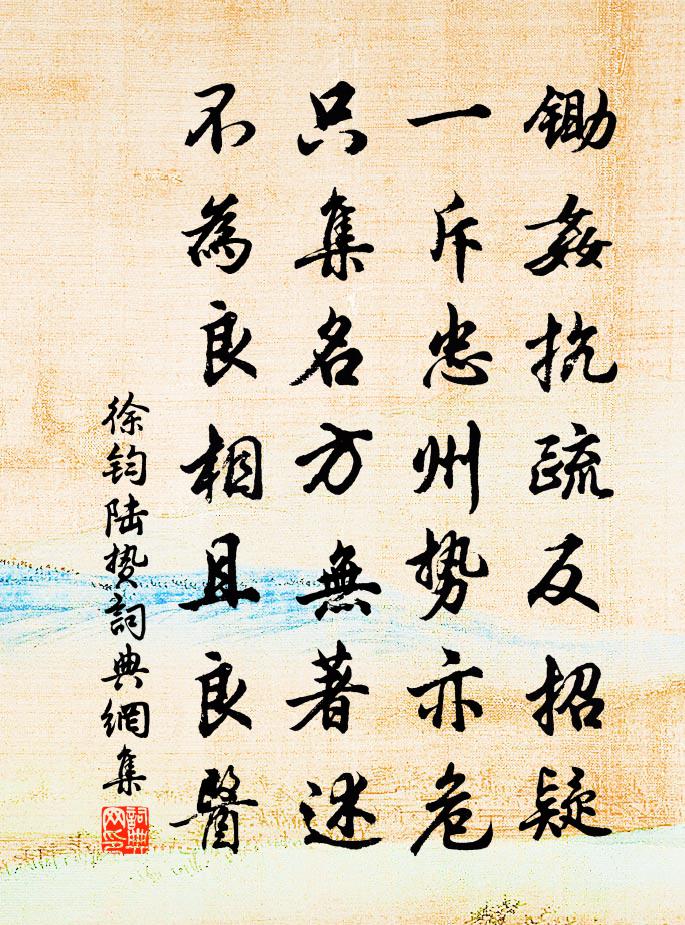 鋤姦抗疏反招疑
一斥忠州势亦危
只集名方無著述
不為良相且良醫
徐钧陆贽詞典網集
詞典网印